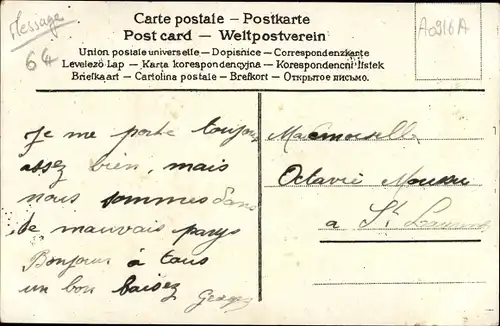 Message
64
A0916A
Carte postale – Postkarte
Post card – Weltpostverein
Union postale universelle – Dopisnice – Correspondenzkarte
Levelező Lap – Karta korespondencyjna – Korespondenční lístek
Briefkaart – Cartolina postale – Brefkort – Открытое письмо.
Je me porte toujours
assez bien, mais
nous sommes dans
de mauvais pays
Bonjour à tous
un bon baisez
Georges
Mademoiselle
Octavie
a St